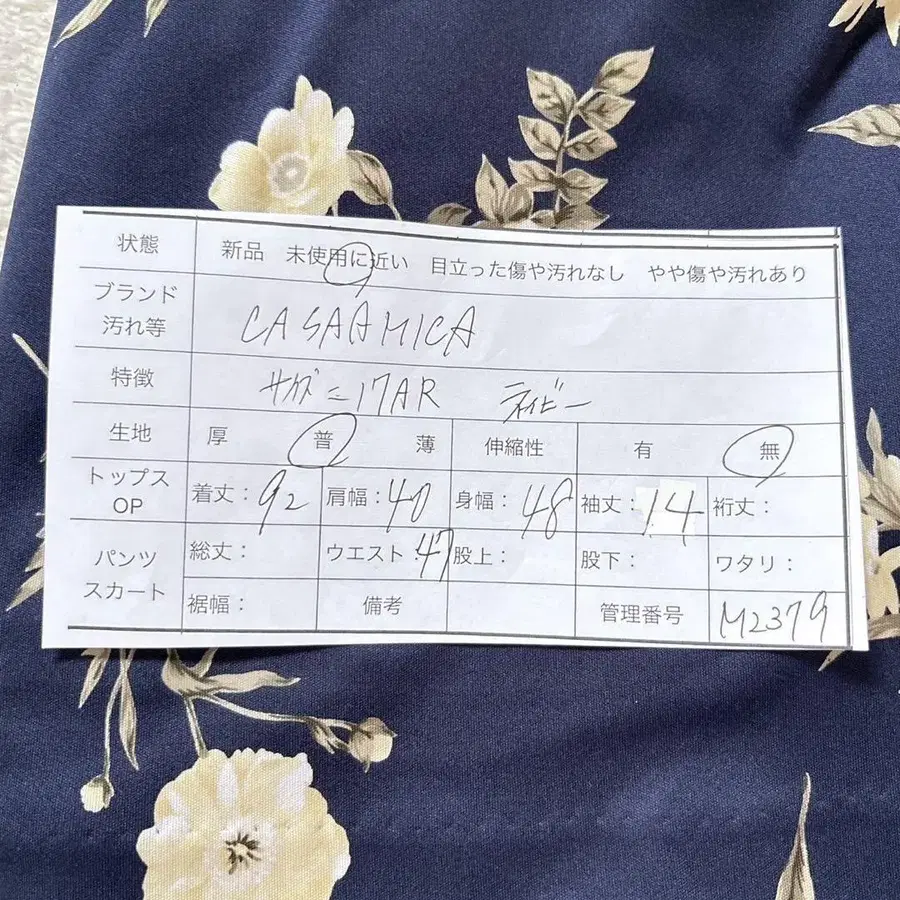 状態 新品 未使用に近い 目立った傷や汚れなし やや傷や汚れあり
ブランド
汚れ等 CASAAMICA
特徴 サイズ=17AR ネイビー
生地 厚 普 薄 伸縮性 有 無
トップス
OP 着丈: 92 肩幅: 40 身幅: 48 袖丈: 14 裄丈:
パンツ
スカート 総丈: ウエスト: 47 股上: 股下: ワタリ:
裾幅: 備考 管理番号 M2379